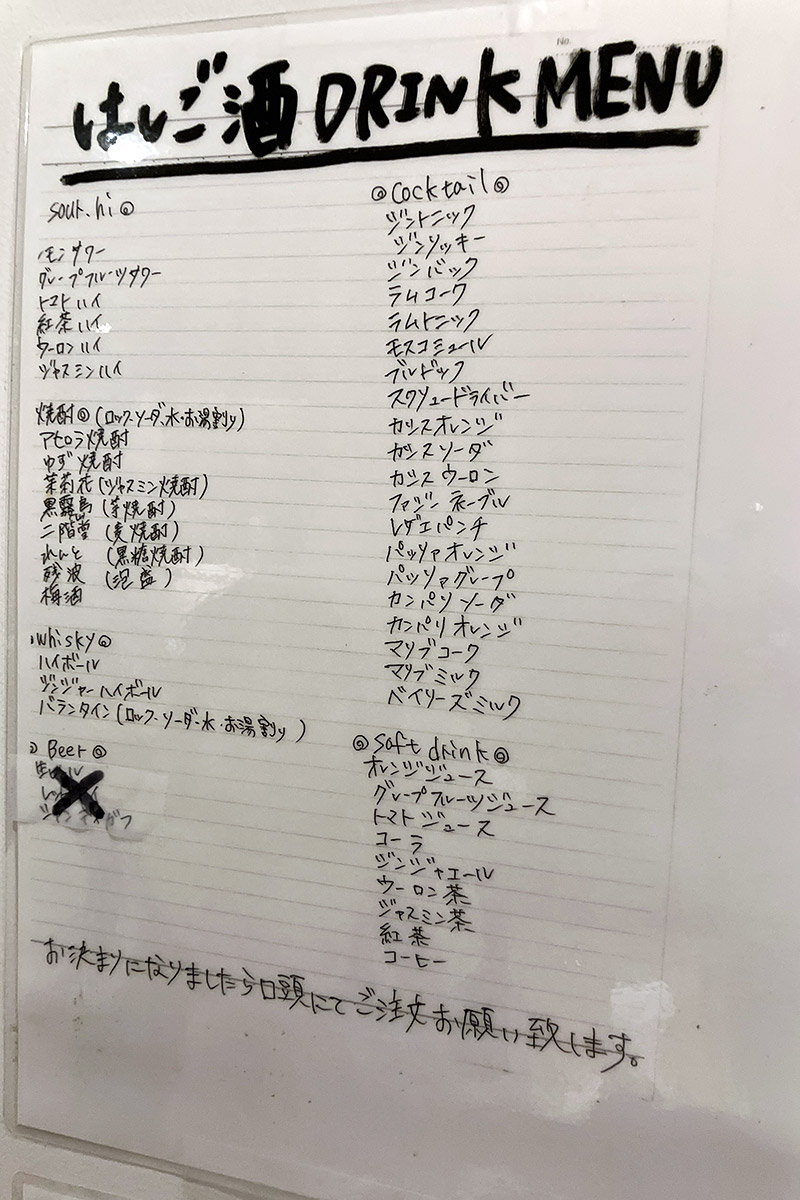 No.
はしご酒 DRINK MENU
sour.hi◎
レモンサワー
グレープフルーツサワー
トマトハイ
紅茶ハイ
ウーロンハイ
ジャスミンハイ
焼酎◎(ロック・ソーダ、水・お湯割り)
アセロラ焼酎
ゆず焼酎
茉莉花(ジャスミン焼酎)
黒霧島(芋焼酎)
二階堂(麦焼酎)
れんと(黒糖焼酎)
残波(泡盛)
梅酒
whisky◎
ハイボール
ジンジャーハイボール
バランタイン(ロック・ソーダ・水・お湯割り)
Beer◎
◎Cocktail◎
ジントニック
ジンリッキー
ジンバック
ラムコーク
ラムトニック
モスコミュール
ブルドック
スクリュードライバー
カシスオレンジ
カシスソーダ
カシスウーロン
ファジーネーブル
レゲエパンチ
パッソアオレンジ
パッソアグレープ
カンパリソーダ
カンパリオレンジ
マリブコーク
マリブミルク
ベイリーズミルク
◎Soft drink◎
オレンジジュース
グレープフルーツジュース
トマトジュース
コーラ
ジンジャエール
ウーロン茶
ジャスミン茶
紅茶
コーヒー
お決まりになりましたら口頭にてご注文お願い致します。